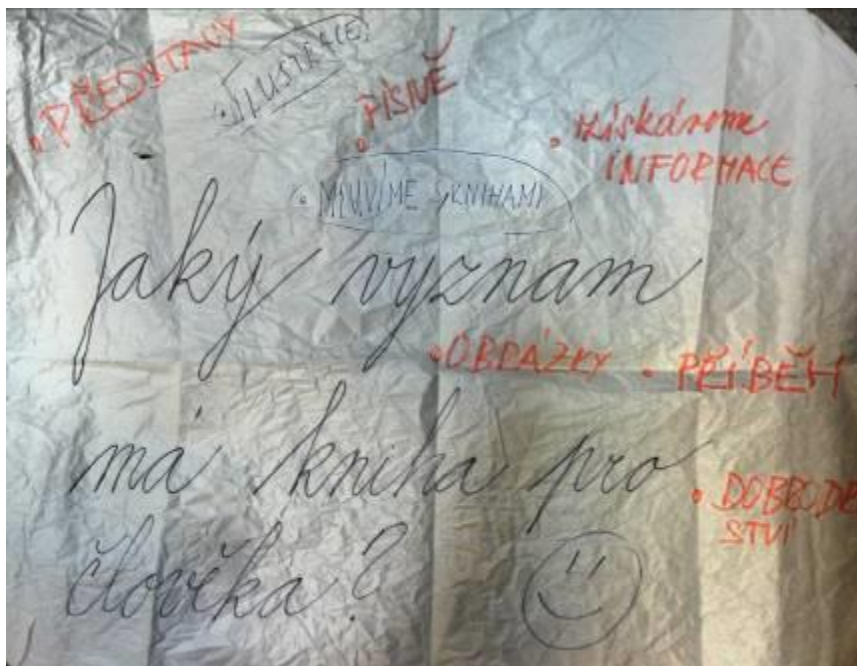 • PŘEDSTAVY
• ILUSTRACE
• PÍSNĚ
• získávám
INFORMACE
• MLUVÍME S KNIHAMI
Jaký význam
• OBRÁZKY
• PŘÍBĚH
má kniha pro
• DOBRODRUŽ
STVÍ
člověka?